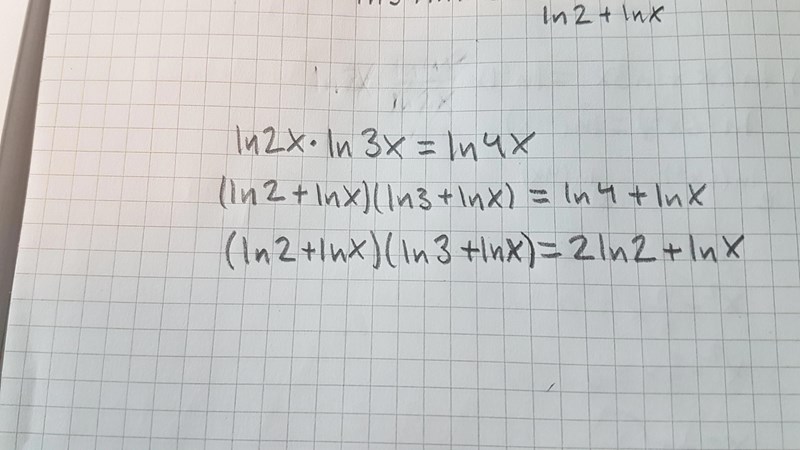 ln2+lnx
ln2x·ln3x=ln4x
(ln2+lnx)(ln3+lnx)=ln4+lnx
(ln2+lnx)(ln3+lnx)=2ln2+lnx